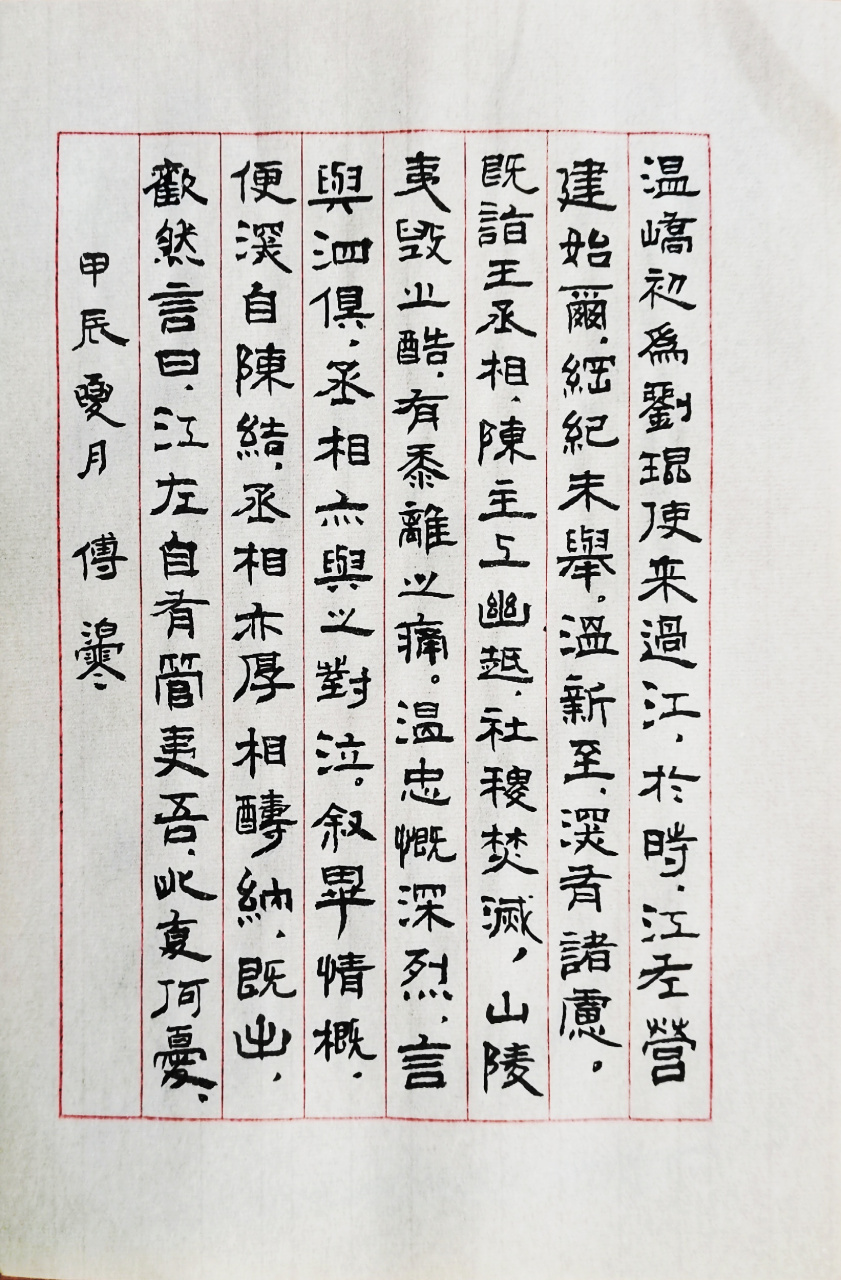 温嶠初爲劉琨使来過江，於時，江左營
建始爾，綱紀未舉。溫新至，深有諸慮。
既詣王丞相，陳主上幽越，社稷焚滅，山陵
夷毀之酷，有黍離之痛。温忠慨深烈，言
與泗俱，丞相亦與之對泣。叙畢情概，
便深自陳結，丞相亦厚相醻納，既出，
歡然言曰，江左自有管夷吾，此复何憂，
甲辰夏月 傅